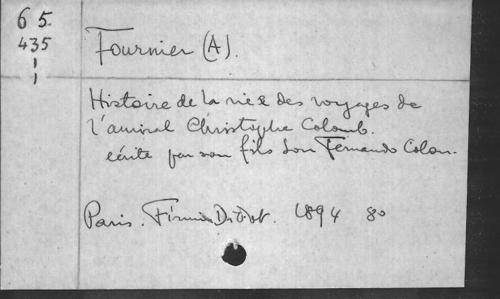 65.
435
Fournier (A).
Histoire de la vie & des voyages de
l'amiral Christophe Colomb.
écrite par son fils don Fernando Colon.
Paris. Firmin Didot. 1894 80